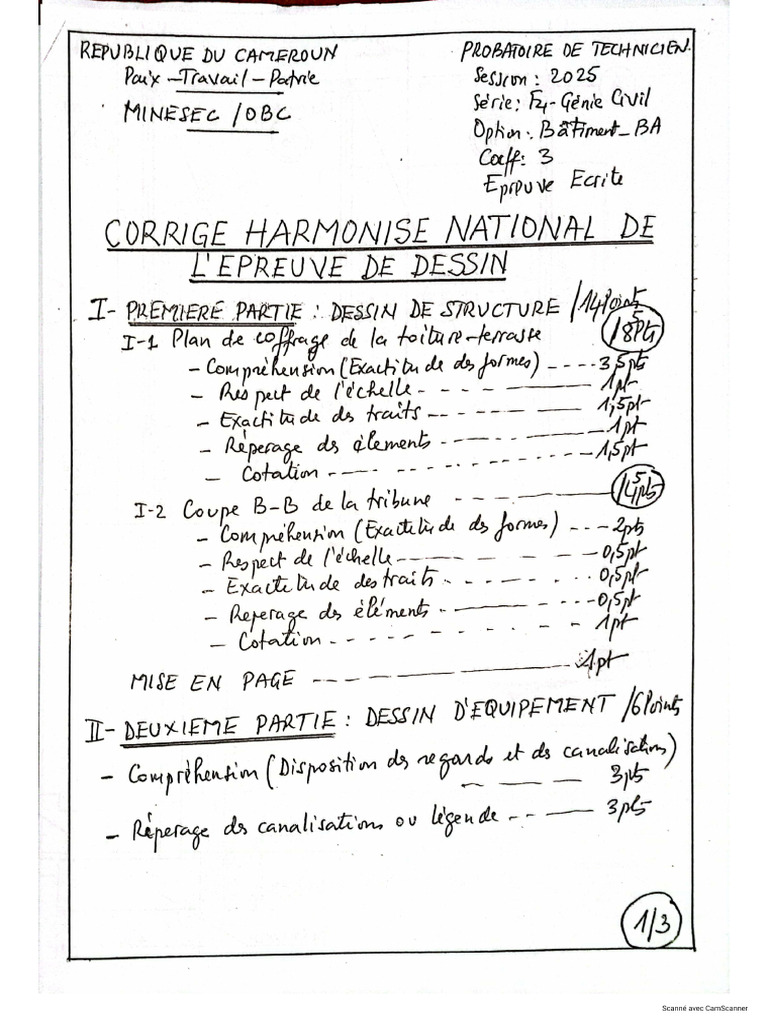 REPUBLIQUE DU CAMEROUN
Paix-Travail-Patrie
MINESEC/OBC
PROBATOIRE DE TECHNICIEN.
Session: 2025
Série: F4-Génie Civil
Option: Bâtiment_BA
Coeff: 3
Epreuve Ecrite
CORRIGE HARMONISE NATIONAL DE
L'EPREUVE DE DESSIN
I- PREMIERE PARTIE: DESSIN DE STRUCTURE /14Points
I-1 Plan de coffrage de la toiture-terrasse /8,5Pts
- Compréhension (Exactitude des formes) ---- 3,5pts
- Respect de l'échelle 1pt
- Exactitude des traits 1,5pt
- Réperage des élements 1pt
- Cotation 1,5pt
I-2 Coupe B-B de la tribune /4,5pts
- Compréhension (Exactitude des formes) --- 2pts
- Respect de l'échelle 0,5pt
- Exactitude des traits 0,5pt
- Reperage des éléments 0,5pt
- Cotation 1pt
MISE EN PAGE 1pt
II- DEUXIEME PARTIE: DESSIN D'EQUIPEMENT /6Points
- Compréhension (Disposition des regards et des canalisations)
3pts
- Réperage des canalisations ou légende 3pts
1/3
Scanné avec CamScanner